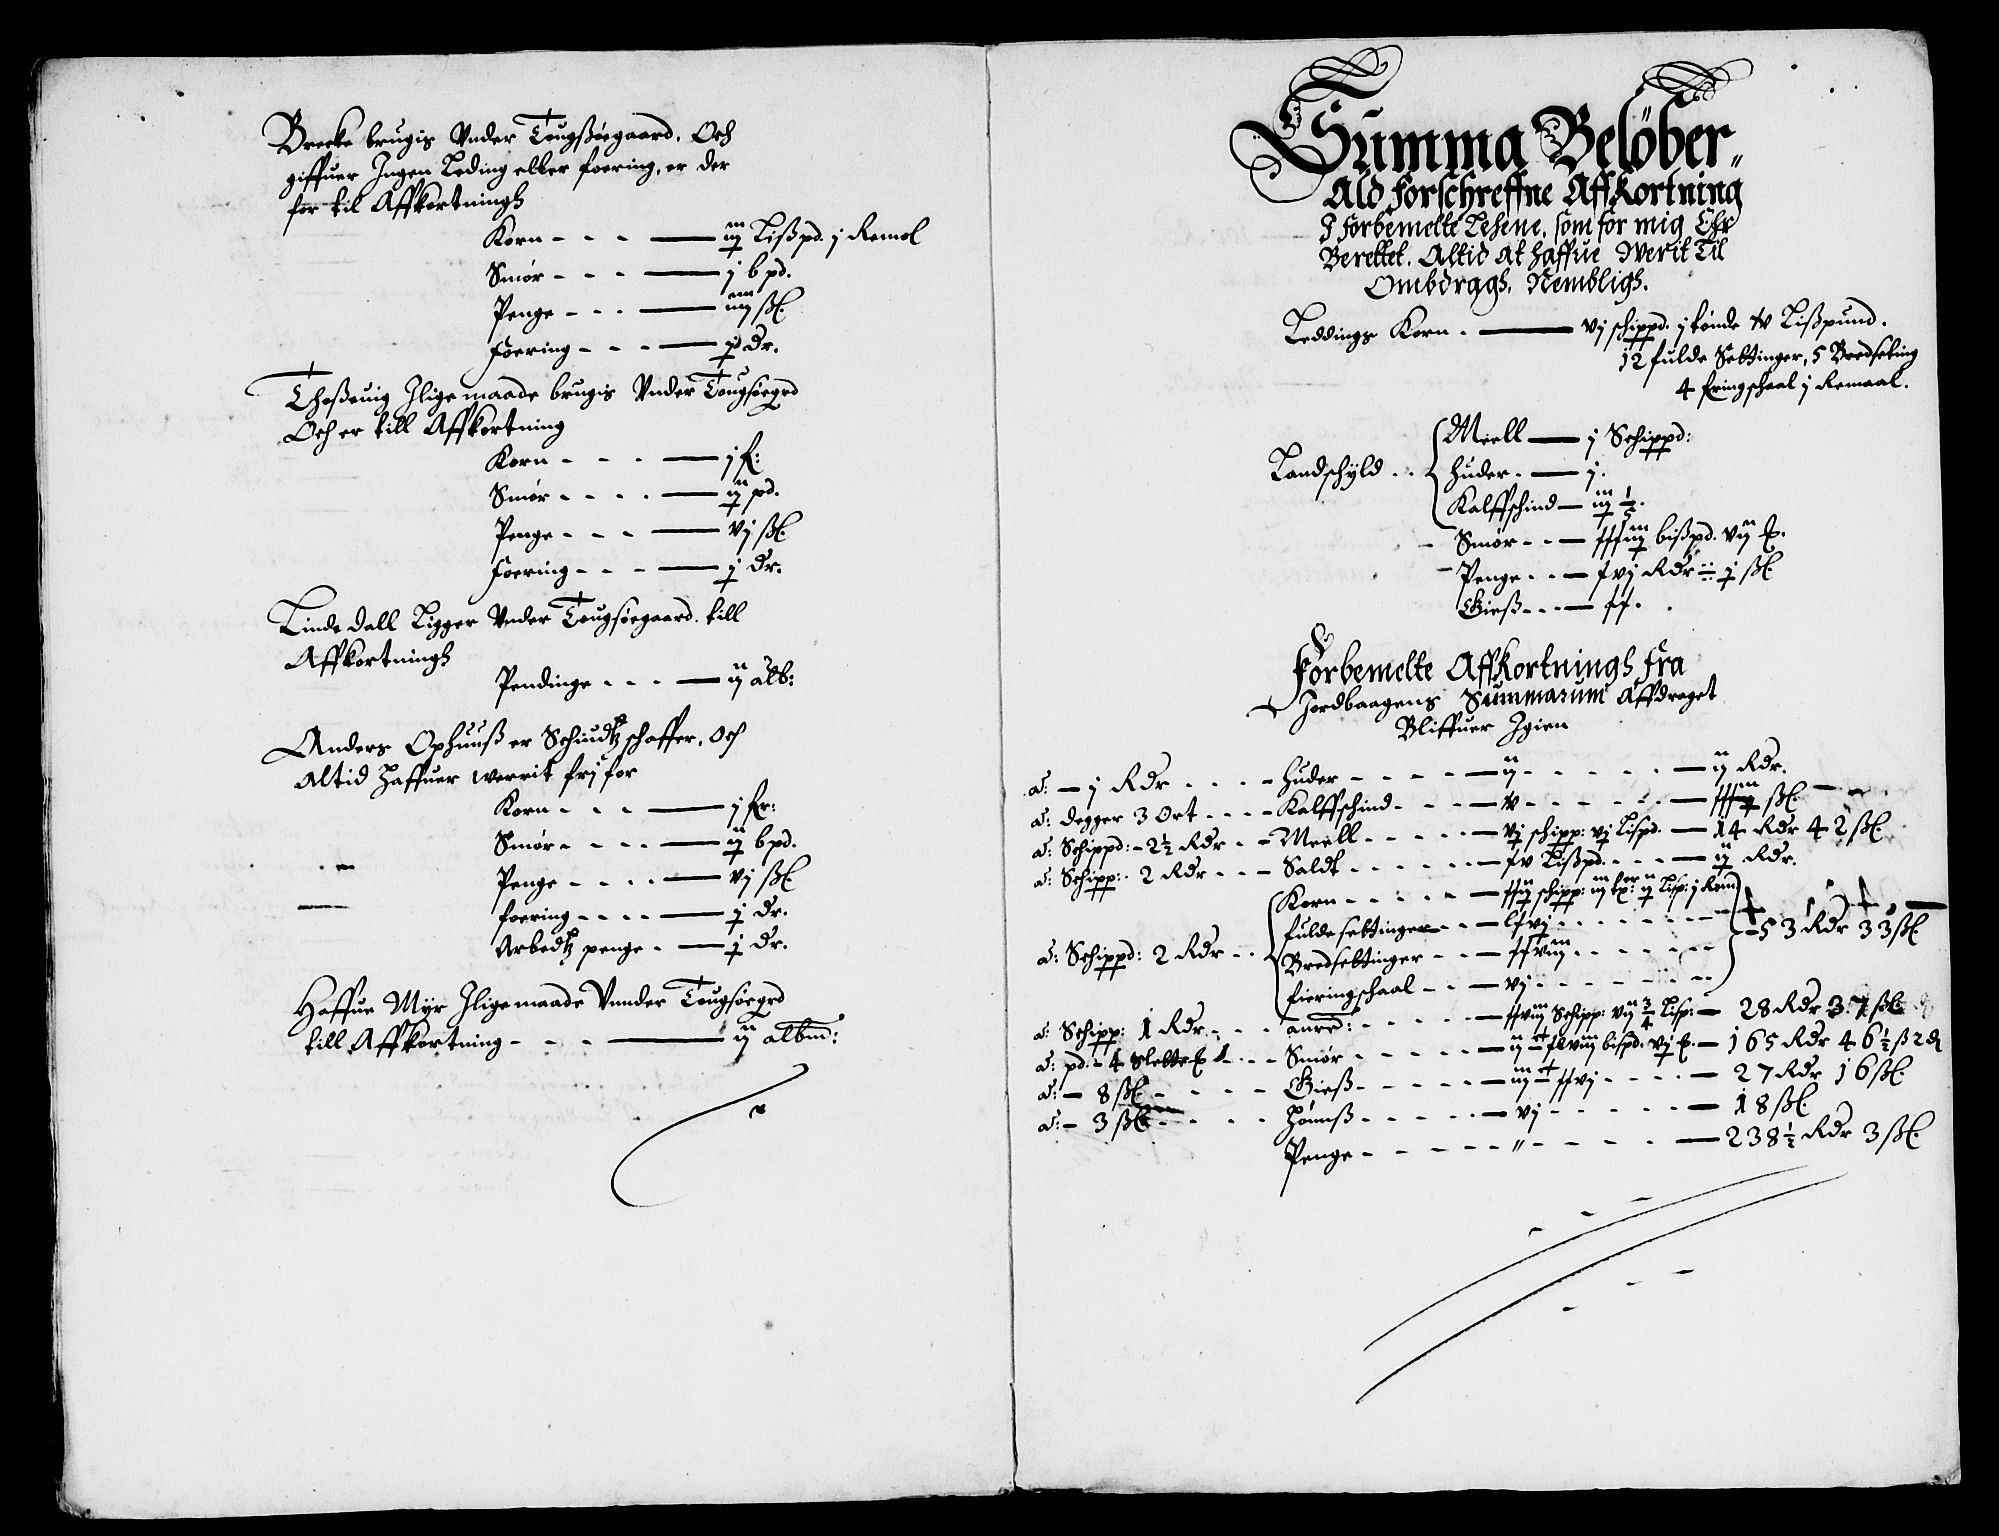 Brecke brugis Vnder Tougsøegaard, Och
giffuer Ingen Leding eller foering, er der
for til Affkortningh
Korn - - - — iij Lißpd. j Remol
Smør - - - — j bpd.
Penge - - - — iiij ßl.
foering - - - — j Dr.
Thoßeuig Iligemaade brugis Vnder Tougsøegrd
Och er till Affkortning
Korn - - - — j fr:
Smør - - - - — ij pd.
Penge - - - — vj ßl.
foering - - - — j Dr.
Linde dall Ligger Vnder Tougsøegaard. till
Affkortningh
Pendinge - - - — ij alb:
Anders Ophuuß er Schiudtz schaffer, Och
Altid haffuer werrit frj for
Korn - - - — j fr:
Smør - - - - — ij bpd.
Penge - - - - — vj ßl
foering - - - - — j Dr.
Arbedtz penge - — j Dr.
Haffue Myr Iligemaade Vnnder Tougsøegrd
till Affkortning - - - - — ij albm:
Summa Beløber
Ald Forschreffne Affkortning
I forbemelte Lehene, som for mig Ehr
Berettet. Altid at haffue Werit Til
Ombdragh, Nembligh.
Leddings Korn - — vj schippd. j tønde iv Lißpund.
12 fulde Settinger, 5 Bredseting
4 fringschaal j Remaal.
Landschyld - - Meell — j Schippd:
huder - — j.
Kalffschind — iij 1/5.
Smør - - — xxxiij bißpd. vij
Penge - - — xvj Rdr ij ßl
Gieß - - - — xx.
Forbemelte Affkortningh fra
Jordbaagens Summarum Affdraget
Bliffuer Igien
a: — j Rdr - - - - huder - - - - — ij - - - - - — ij Rdr.
a: degger 3 Ort - - - - Kalffschind - - - — iv - - - - - — ßl.
a: Schippd: - 2½ Rdr - - Meell - - - - — vj schipp: vj Lispd. — 14 Rdr 42 ßl.
a: Schipp: - 2 Rdr - - - Saldt - - - - - — xv Lißpd. - - - — ij Rdr.
Korn - - - - — xxij schipp: iij ij Lisp: j Rem
fuldesettinger - - — lxvj - - - - - -
a: Schippd: 2 Rdr - - Bredsettinger - - — xxviij - - - - - 53 Rdr 33 ßl
fieringschaal - - — vj - - - - - -
a: Schipp: 1 Rdr - - - anred: - - - - — xxviij Schipp: vij ¾ Lisp: — 28 Rdr 37 ßl
a: pd. - 4 Slette - - Smør - - - - - — bispd. vj — 165 Rdr 46½ ß 2
a: — 8 ßl - - - - - Gieß - - - - - — iij xxvj - - - — 27 Rdr 16 ßl.
a: — 3 ßl - - - - Hønnß - - - - - — vj - - - - - — 18 ßl.
Penge - - - - - „ - - - - - — 238½ Rdr 3 ßl.